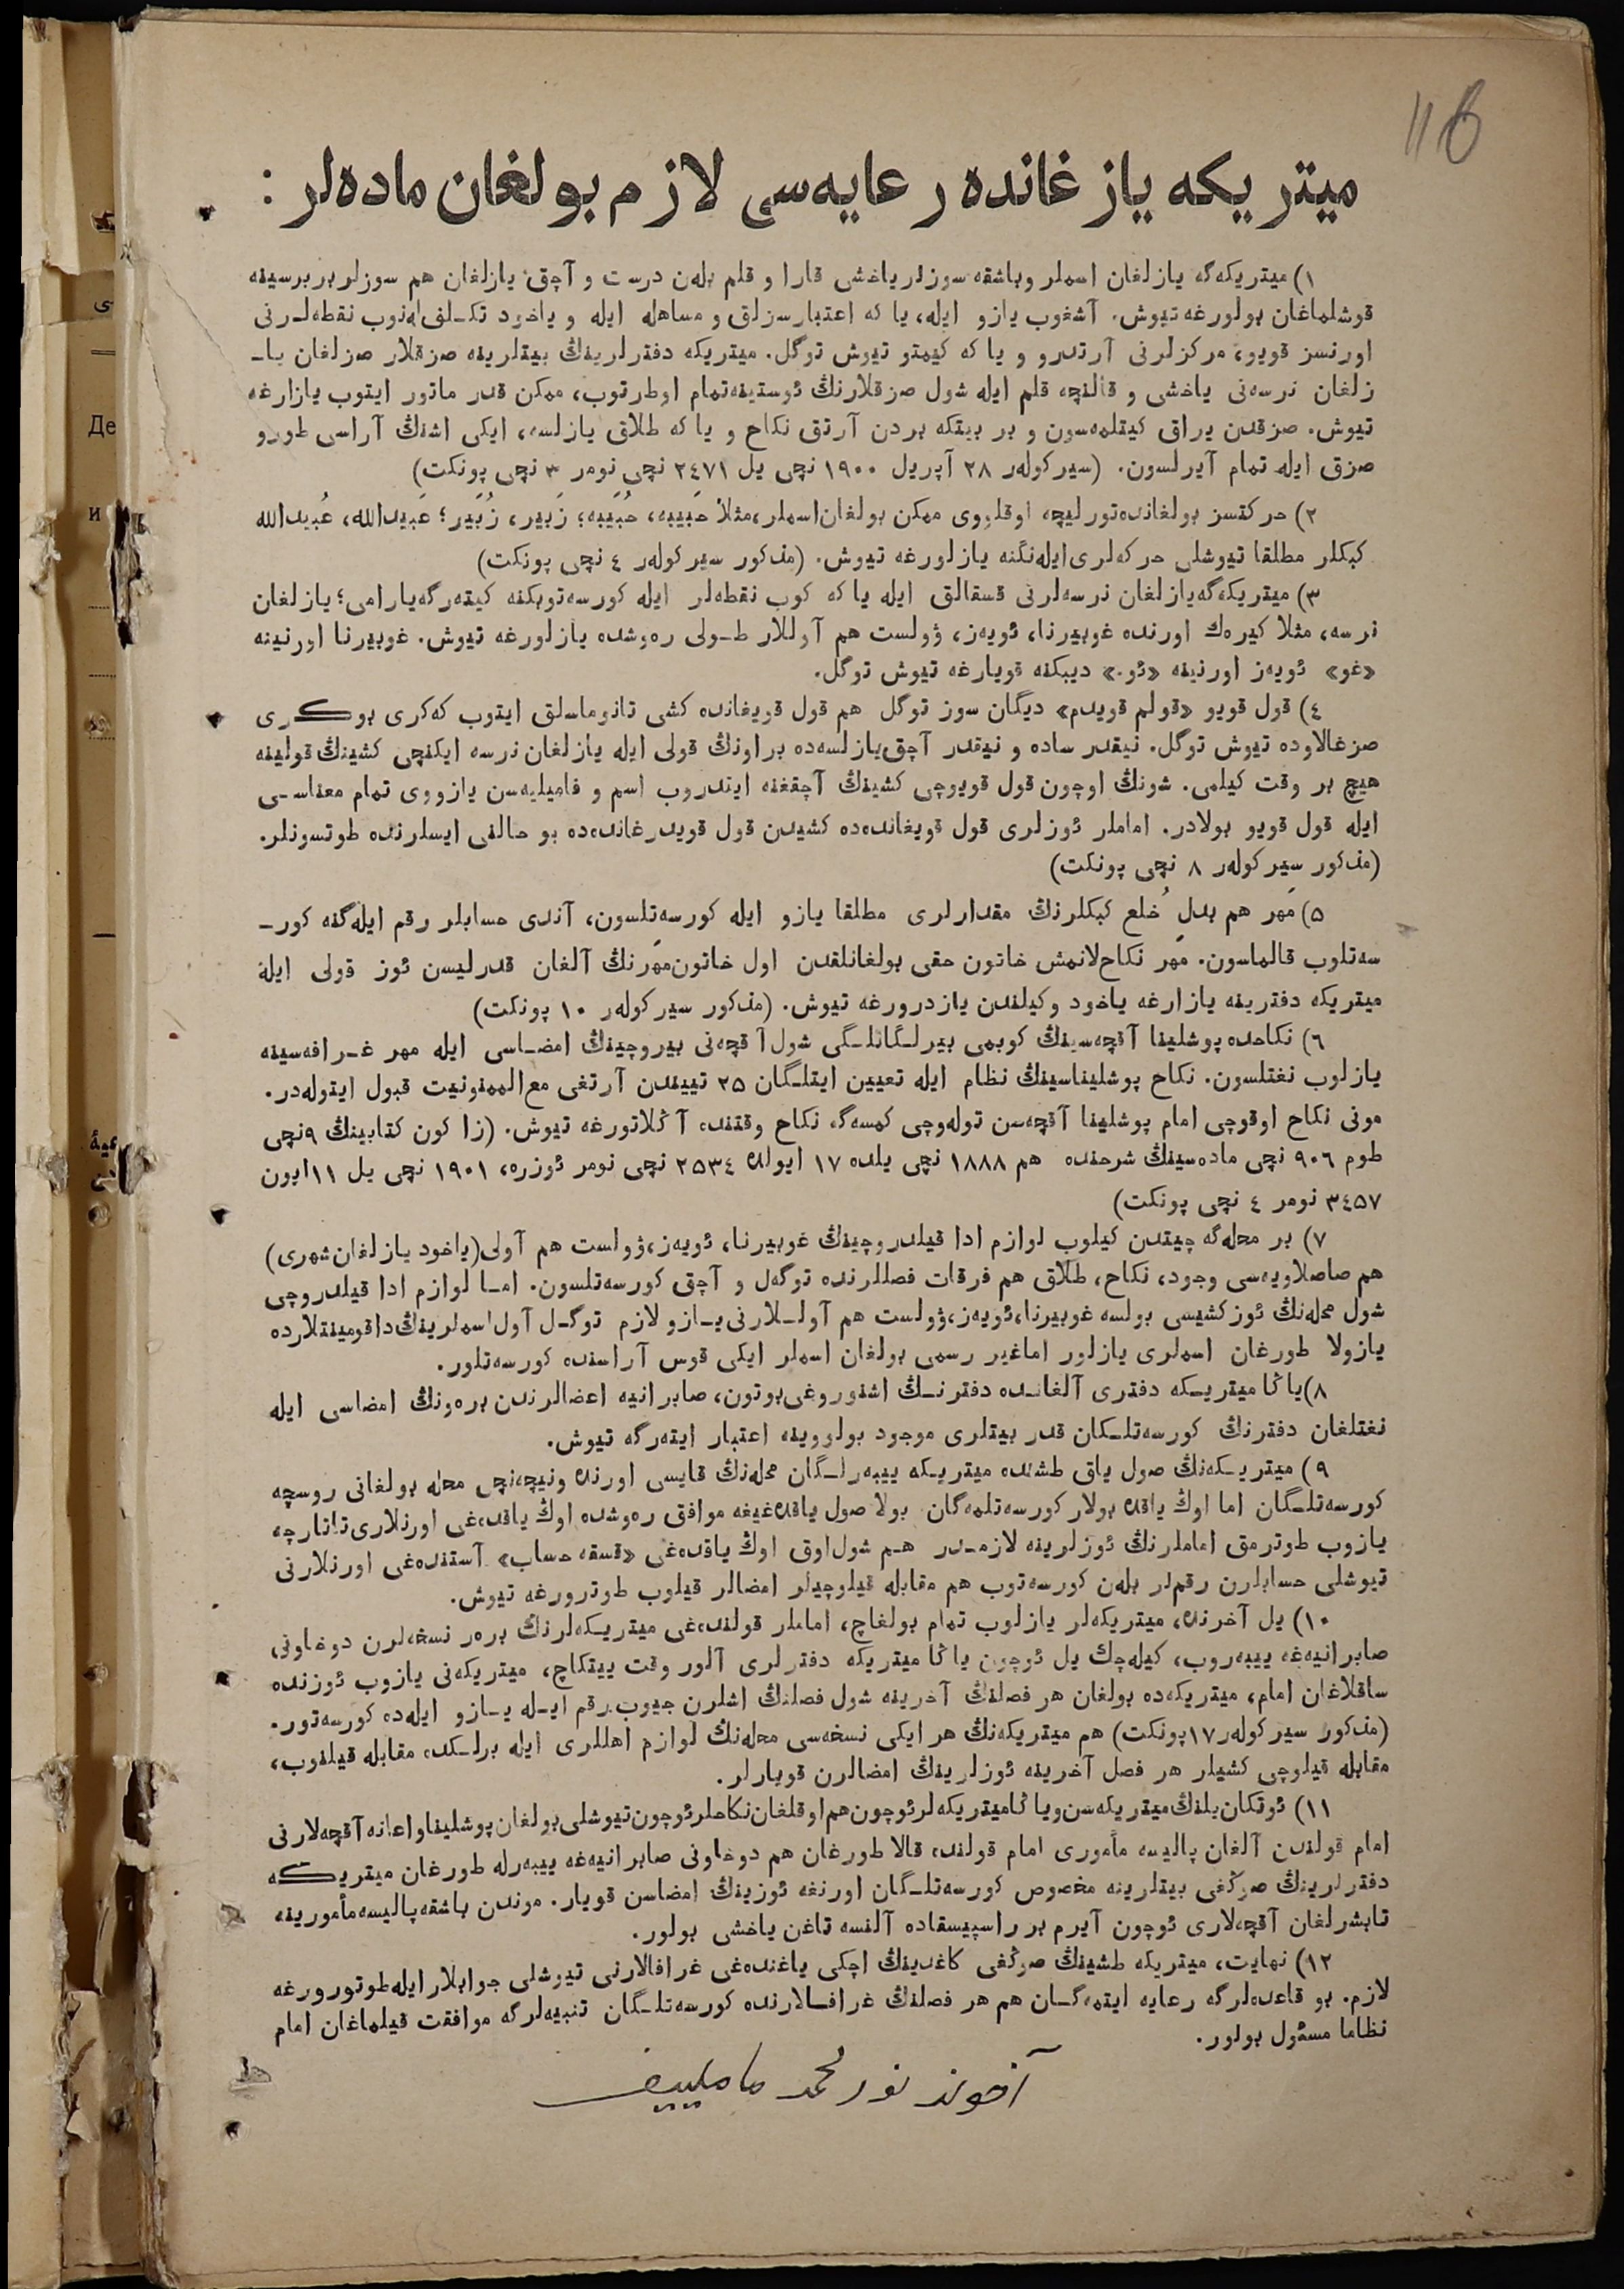 116
میتریكه یازغانده رعایه‌سی لازم بولغان ماده‌لر :
١) میتریكه‌گه یازلغان اسملر وباشقه سوزلر یاخشی قارا و قلم بله‌ن درست و آچق یازلغان هم سوزلر بربرسینه
قوشلماغان بولورغه تیوش. آشغوب یازو ایله، یا كه اعتبارسزلق و مساهله ایله و یاخود تكـلف‌له‌نوب نقطه‌لـرنی
اورنسز قویو، مركزلرنی آرتدرو و یا كه كیمتو تیوش توگل. میتریكه دفترلرینڭ بیتلرینه صزقلار صزلغان یاـ
زلغان نرسه‌نی یاخشی و قالنچه قلم ایله شول صزقلارنڭ ئوستینه‌تمام اوطرتوب، ممكن قدر ماتور ایتوب یازارغه
تیوش. صزقدن یراق كیتلمه‌سون و بر بیتكه بردن آرتق نكاح و یا كه طلاق یازلسه، ایكی اشنڭ آراسی طورو
صزق ایله تمام آیرلسون. (سیركوله‌ر ٢٨ آپریل ١٩٠٠ نچی یل ٢٤٧١ نچی نومر ٣ نچی پونكت)
٢) حركتسز بولغانده‌تورلیچه اوقلووی ممكن بولغان‌اسملر،مثلا حَبیبه، حُبَیبه؛ زَبیر، زُبَیر؛ عَبیدالله، عُبیدالله
كبكلر مطلقا تیوشلی حركه‌لری‌ایله‌نگنه یازلورغه تیوش. (مذكور سیركوله‌ر ٤ نچی پونكت)
٣) میتریكه‌گه‌یازلغان نرسه‌لرنی قسقالق ایله یا كه كوب نقطه‌لر ایله كورسه‌توبكنه كیته‌رگه‌یارامی؛ یازلغان
نرسه، مثلا كیره‌ك اورنده غوبیرنا، ئویه‌ز، ۋولست هم آوللار طـولی ره‌وشده یازلورغه تیوش. غوبیرنا اورنینه
«غو» ئویه‌ز اورنینه «ئو.» دیبكنه قویارغه تیوش توگل.
٤) قول قویو «قولم قویدم» دیگان سوز توگل هم قول قویغانده كشی تانوماسلق ایتوب كه‌كری بوكـری
صزغالاوده تیوش توگل. نیقدر ساده و نیقدر آچق‌یازلسه‌ده براونڭ قولی ایله یازلغان نرسه ایكنچی كشینڭ قولینه
هیچ بر وقت كیلمی. شونڭ اوچون قول قویوچی كشینڭ آچقغنه ایتدروب اسم و فامیلیه‌سن یازووی تمام معناسـی
ایله قول قویو بولادر. اماملر ئوزلری قول قویغانده‌ده كشیدن قول قویدرغانده‌ده بو حالنی ایسلرنده طوتسونلر.
(مذكور سیركوله‌ر ٨ نچی پونكت)
٥) مَهر هم بدلِ خُلع كبكلرنڭ مقدارلری مطلقا یازو ایله كورسه‌تلسون، آندی حسابلر رقم ایله‌گنه كورـ
سه‌تلوب قالماسون. مَهر نكاح‌لانمش خاتون حقی بولغانلقدن اول خاتون‌مَهرنڭ آلغان قدرلیسن ئوز قولی ایله
میتریكه دفترینه یازارغه یاخود وكیلندن یازدرورغه تیوش. (مذكور سیركوله‌ر ١٠ پونكت)
٦) نكاحده پوشلینا آقچه‌سینڭ كوبمی بیرلـگانلـگی شول آقچه‌نی بیروچینڭ امضـاسی ایله مهر غـرافه‌سینه
یازلوب نغتلسون. نكاح پوشلیناسینڭ نظام ایله تعیین ایتلـگان ٢٥ تییندن آرتغی مع‌الممنونیت قبول ایتوله‌در.
مونی نكاح اوقوچی امام پوشلینا آقچه‌سن توله‌وچی كمسه‌گه نكاح وقتنده آڭلاتورغه تیوش. (زاكون كتابینڭ ٩نچی
طوم ٩٠٦ نچی ماده‌سینڭ شرحنده هم ١٨٨٨ نچی یلده ١٧ ایولده ٢٥٣٤ نچی نومر ئوزره، ١٩٠١ نچی یل ١١ایون
٣٤٥٧ نومر ٤ نچی پونكت)
٧) بر محله‌گه چیتدن كیلوب لوازم ادا قیلدروچینڭ غوبیرنا، ئویه‌ز،ۋولست هم آولی(یاخود یازلغان‌شهری)
هم صاصلاویه‌سی وجود، نكاح، طلاق هم فرقات فصللرنده توگه‌ل و آچق كورسه‌تلسون. امـا لوازم ادا قیلدروچی
شول محله‌نڭ ئوز كشیسی بولسه غوبیرنا،ئویه‌ز،ۋولست هم آولـلارنی یـازو لازم توگـل آول‌اسملرینڭ‌داقومینتلارده
یازولا طورغان اسملری یازلور اماغیر رسمی بولغان اسملر ایكی قوس آراسنده كورسه‌تلور.
٨)یاڭا میتریـكه دفتری آلغانـده دفترنـڭ اشنوروغی‌بوتون، صابرانیه اعضالرندن بره‌ونڭ امضاسی ایله
نغتلغان دفترنڭ كورسه‌تلـكان قدر بیتلری موجود بولووینه اعتبار ایته‌رگه تیوش.
٩) میتریـكه‌نڭ صول یاق طشنده میتریـكه ییبه‌رلـگان محله‌نڭ قایسی اورنده ونیچه‌نچی محله بولغانی روسچه
كورسه‌تلـگان اما اوڭ یاقده بولار كورسه‌تلمه‌گان بولا صول یاقده‌غیغه موافق ره‌وشده اوڭ یاقده‌غی اورنلاری‌تاتارچه
یازوب طوترمق اماملرنڭ ئوزلرینه لازمـدر هـم شول‌اوق اوڭ یاقده‌غی «قسقه حساب» آستنده‌غی اورنلارنی
تیوشلی حسابلرن رقم‌لر بله‌ن كورسه‌توب هم مقابله قیلوچیلر امضالر قیلوب طوترورغه تیوش.
١٠) یل آخرنده، میتریكه‌لر یازلوب تمام بولغاچ، اماملر قولنده‌غی میتریـكه‌لرنڭ بره‌ر نسخه‌لرن دوخاونی
صابرانیه‌غه ییبه‌روب، كیله‌چك یل ئوچون یاڭا میتریكه دفترلری آلور وقت ییتكاچ، میتریكه‌نی یازوب ئوزنده
ساقلاغان امام، میتریكه‌ده بولغان هر فصلنڭ آخرینه شول فصلنڭ اشلرن جیوب رقم ایـله یـازو ایله‌ده كورسه‌تور.
(مذكور سیركوله‌ر١٧پونكت) هم میتریكه‌نڭ هر ایكی نسخه‌سی محله‌نڭ لوازم اهللری ایله برلـكده مقابله قیلنوب،
مقابله قیلوچی كشیلر هر فصل آخرینه ئوزلرینڭ امضالرن قویارلر.
١١) ئوتكان‌یلنڭ‌میتریكه‌سن‌ویاڭامیتریكه‌لرئوچون‌هم‌اوقلغان‌نكاحلرئوچون‌تیوشلی‌بولغان‌پوشلیناواعانه‌آقچه‌لارنی
امام قولندن آلغان پالیسه مأموری امام قولنده قالا طورغان هم دوخاونی صابرانیه‌غه ییبه‌رله طورغان میتریكـه
دفترلرینڭ صوڭغی بیتلرینه مخصوص كورسه‌تلـگان اورنغه ئوزینڭ امضاسن قویار. موندن باشقه‌پالیسه‌مأمورینه
تابشرلغان آقچه‌لاری ئوچون آیرم بر راسپیسقاده آلنسه تاغن یاخشی بولور.
١٢) نهایت، میتریكه طشینڭ صوڭغی كاغدینڭ اچكی یاغنده‌غی غرافالارنی تیوشلی جوابلار ایله‌طوتورورغه
لازم. بو قاعده‌لرگه رعایه ایتمه‌گـان هم هر فصلنڭ غرافـالارنده كورسه‌تلـگان تنبیه‌لرگه موافقت قیلماغان امام
نظاما مسئول بولور.
آخوند نورمحمد ماملییف
Де
и